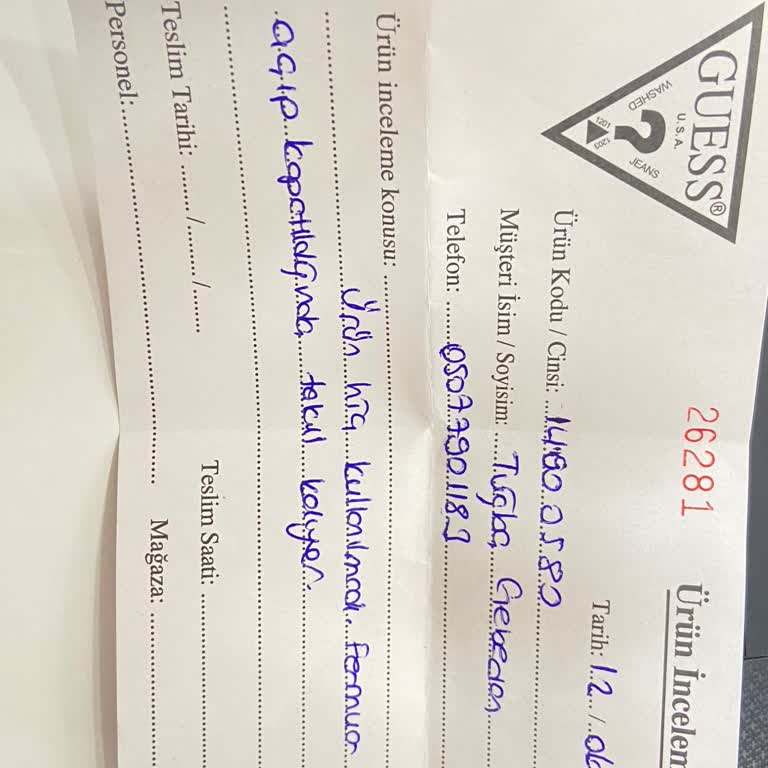 GUESS®
U.S.A.
WASHED
?
1201 1203
JEANS
26281
Ürün İncelem
Tarih: 12/06
Ürün Kodu / Cinsi:
Müşteri İsim / Soyisim: Tuğba
Telefon: 05077901189
Ürün inceleme konusu:
Ürün hiç kullanılmadı. Fermuar
açıp kapatıldığında takılı kalıyor.
Teslim Tarihi: ......../......../......
Teslim Saati:
Personel:
Mağaza: